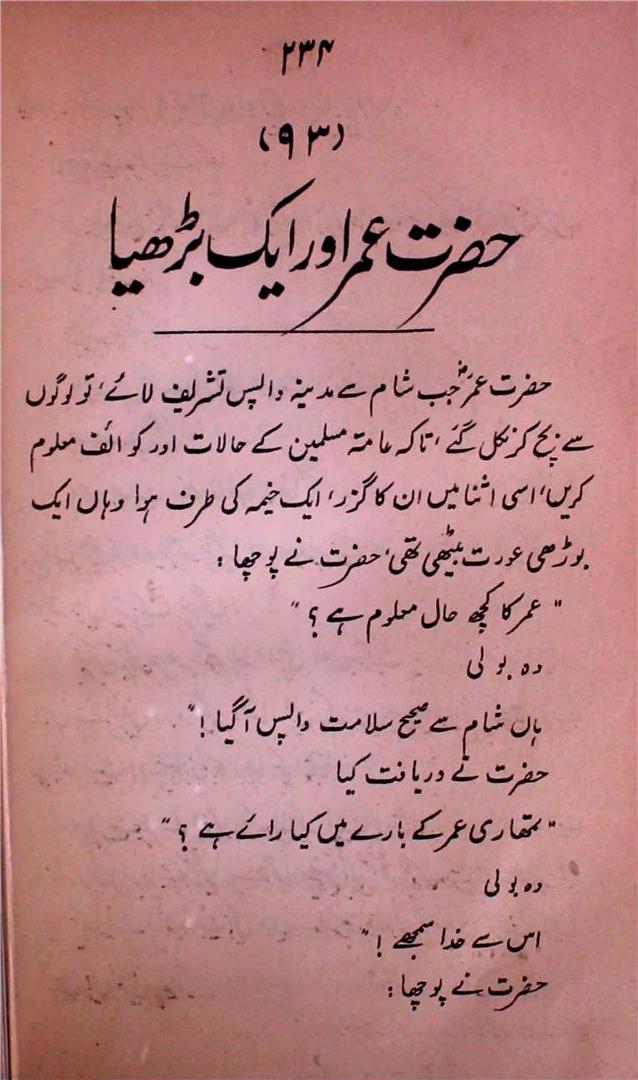 ۲۳۴
(۹۳)
حضرت عمر اور ایک بڑھیا
حضرت عمرؓ جب شام سے مدینہ واپس تشریف لائے، تو لوگوں
سے بچ کر نکل گئے، تاکہ عامتہ مسلمین کے حالات اور کوائف معلوم
کریں، اسی اثنا میں ان کا گزر، ایک خیمہ کی طرف ہوا وہاں ایک
بوڑھی عورت بیٹھی تھی، حضرت نے پوچھا :
" عمر کا کچھ حال معلوم ہے ؟ "
وہ بولی
ہاں شام سے صحیح سلامت واپس آگیا !"
حضرت نے دریافت کیا
" تمھاری عمر کے بارے میں کیا رائے ہے ؟ "
وہ بولی
اس سے خدا سمجھے ! "
حضرت نے پوچھا :